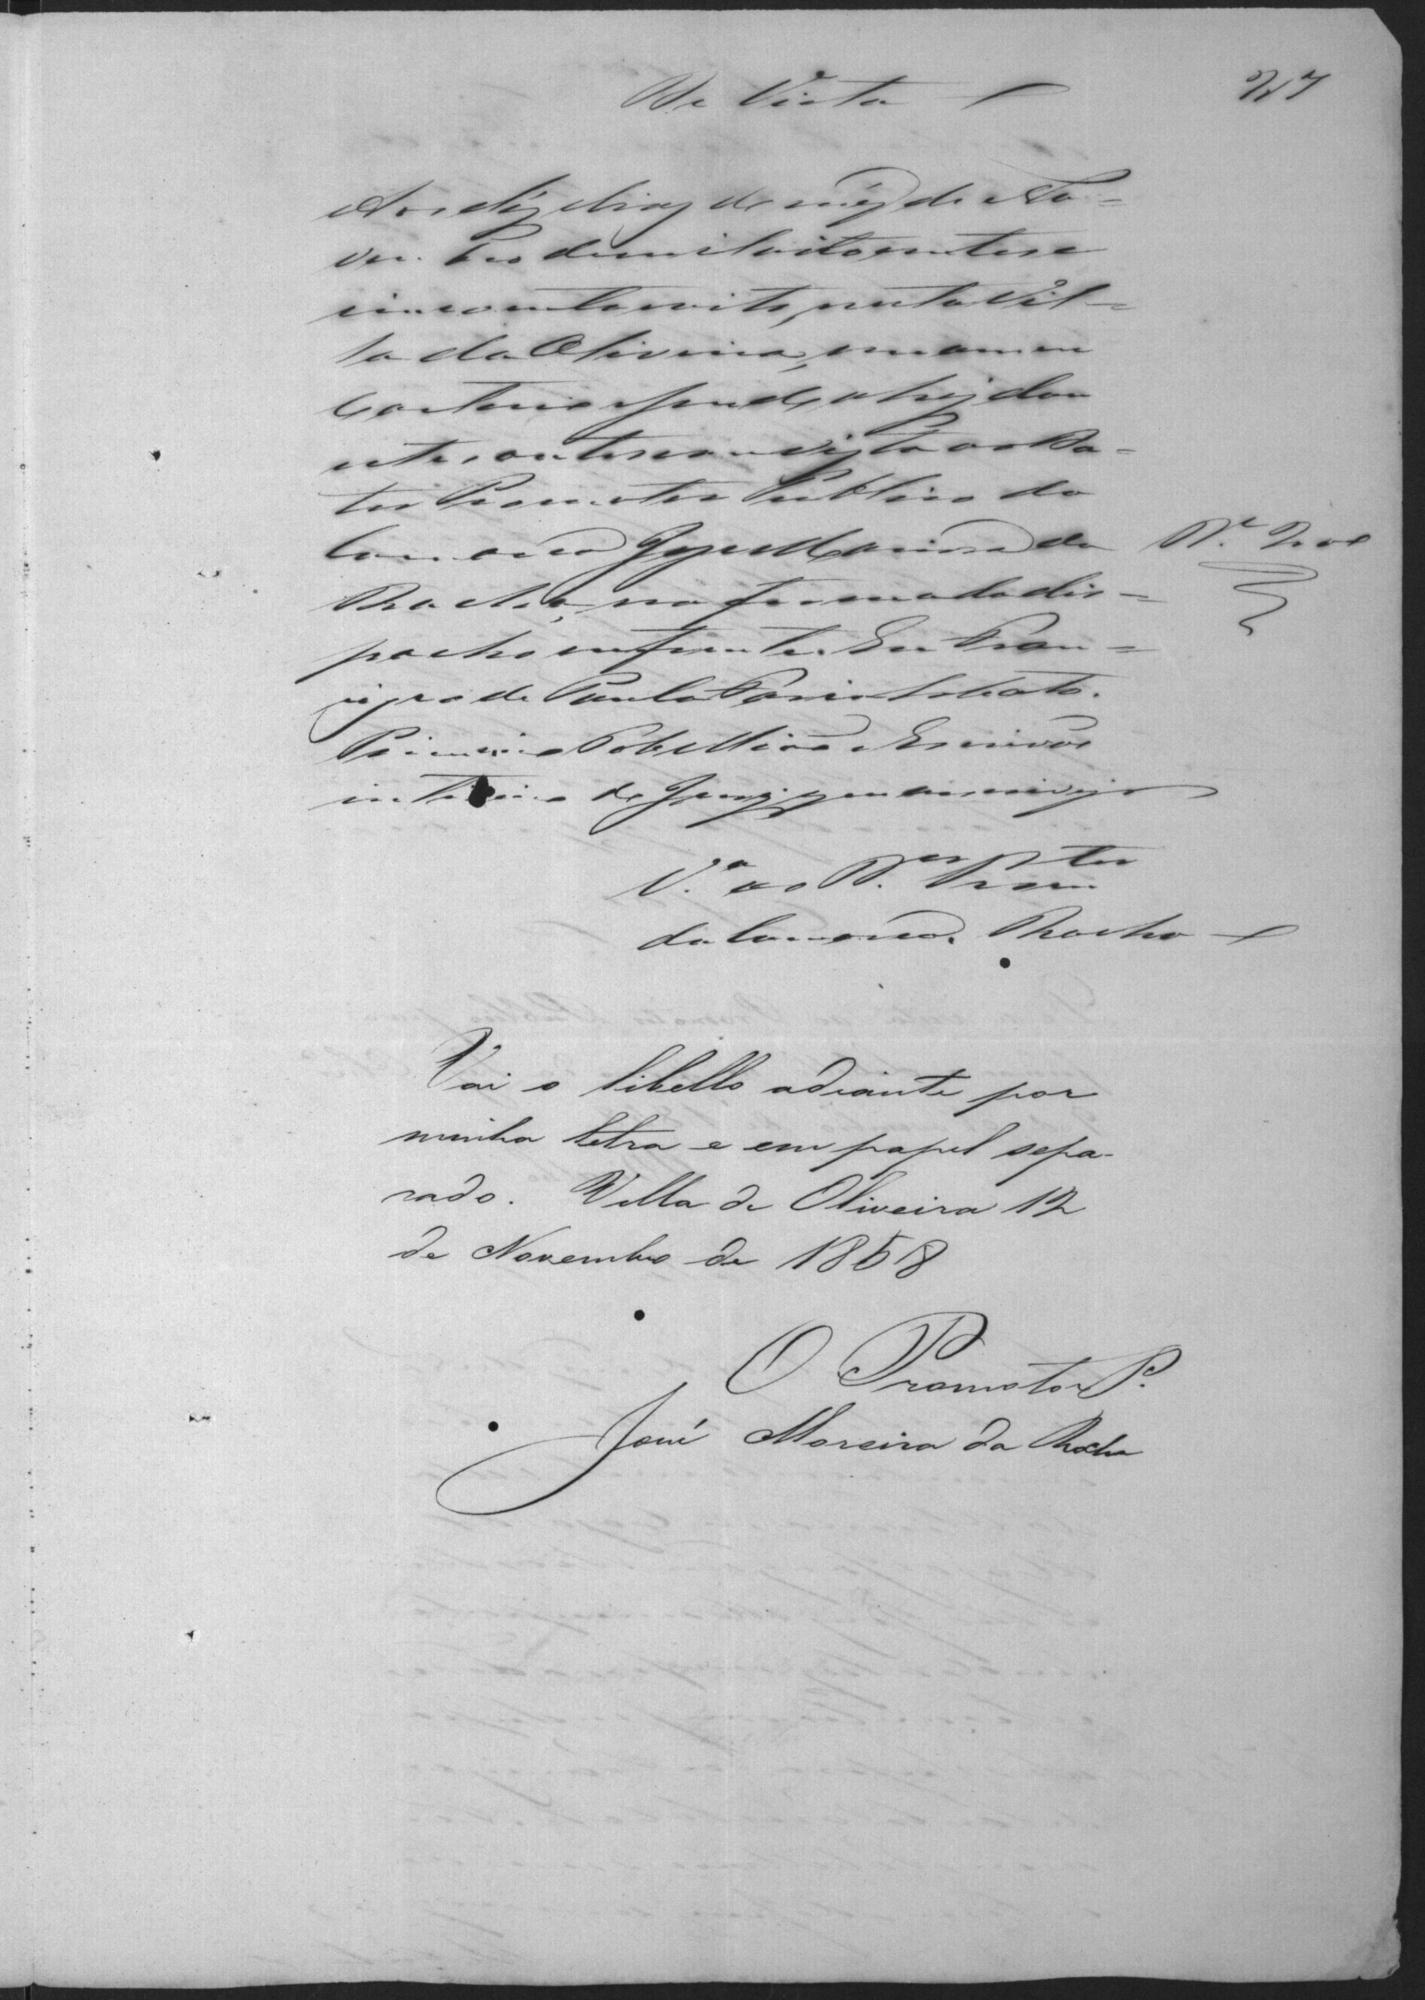 De Vista
27
Aos dez dias do mez de No=
vembro de mil oito centos e
cincoenta e oito, nesta Vil=
la da Oliveira, em o meu
Cartorio faço
estes autos com vista ao Dou=
tor Promotor Publico da
Comarca José Moreira da
Rocha, na forma do des=
pacho em frente. Eu Fran=
cisco de Paula
Primeiro Tabellião e Escrivão
interino do Jury que o escrevi
V.ª ao D.or Prom.tor
da Comarca. Rocha
Vai o libello adiante por
minha letra e em papel sepa-
rado. Villa de Oliveira 12
de Novembro de 1858
O Promotor P.
José Moreira da Rocha